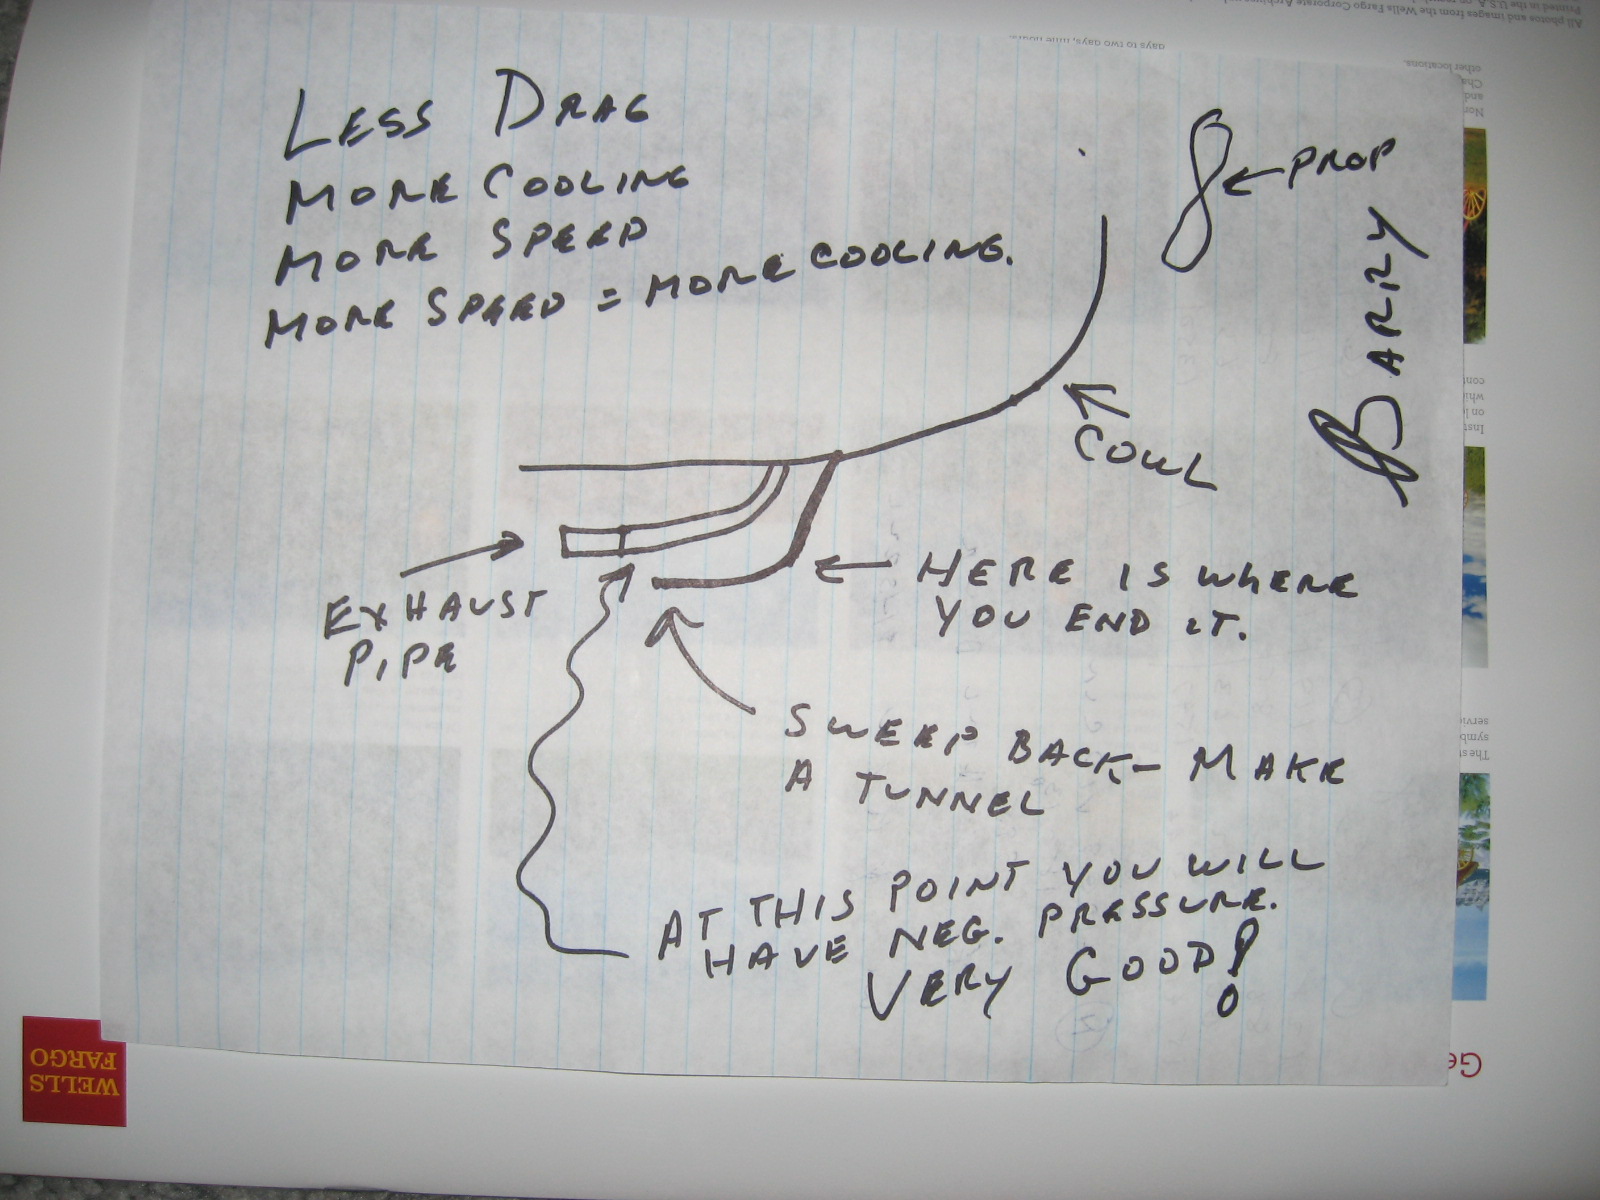 LESS DRAG
MORE COOLING
MORE SPEED
MORE SPEED = MORE COOLING.
PROP
BARRY
COWL
EXHAUST
PIPE
HERE IS WHERE
YOU END IT.
SWEEP BACK - MAKE
A TUNNEL
AT THIS POINT YOU WILL
HAVE NEG. PRESSURE.
VERY GOOD!
WELLS
FARGO
All photos and images from the Wells Fargo Corporate
Printed in the U.S.A.
days to two days,
other locations.
and
Ge